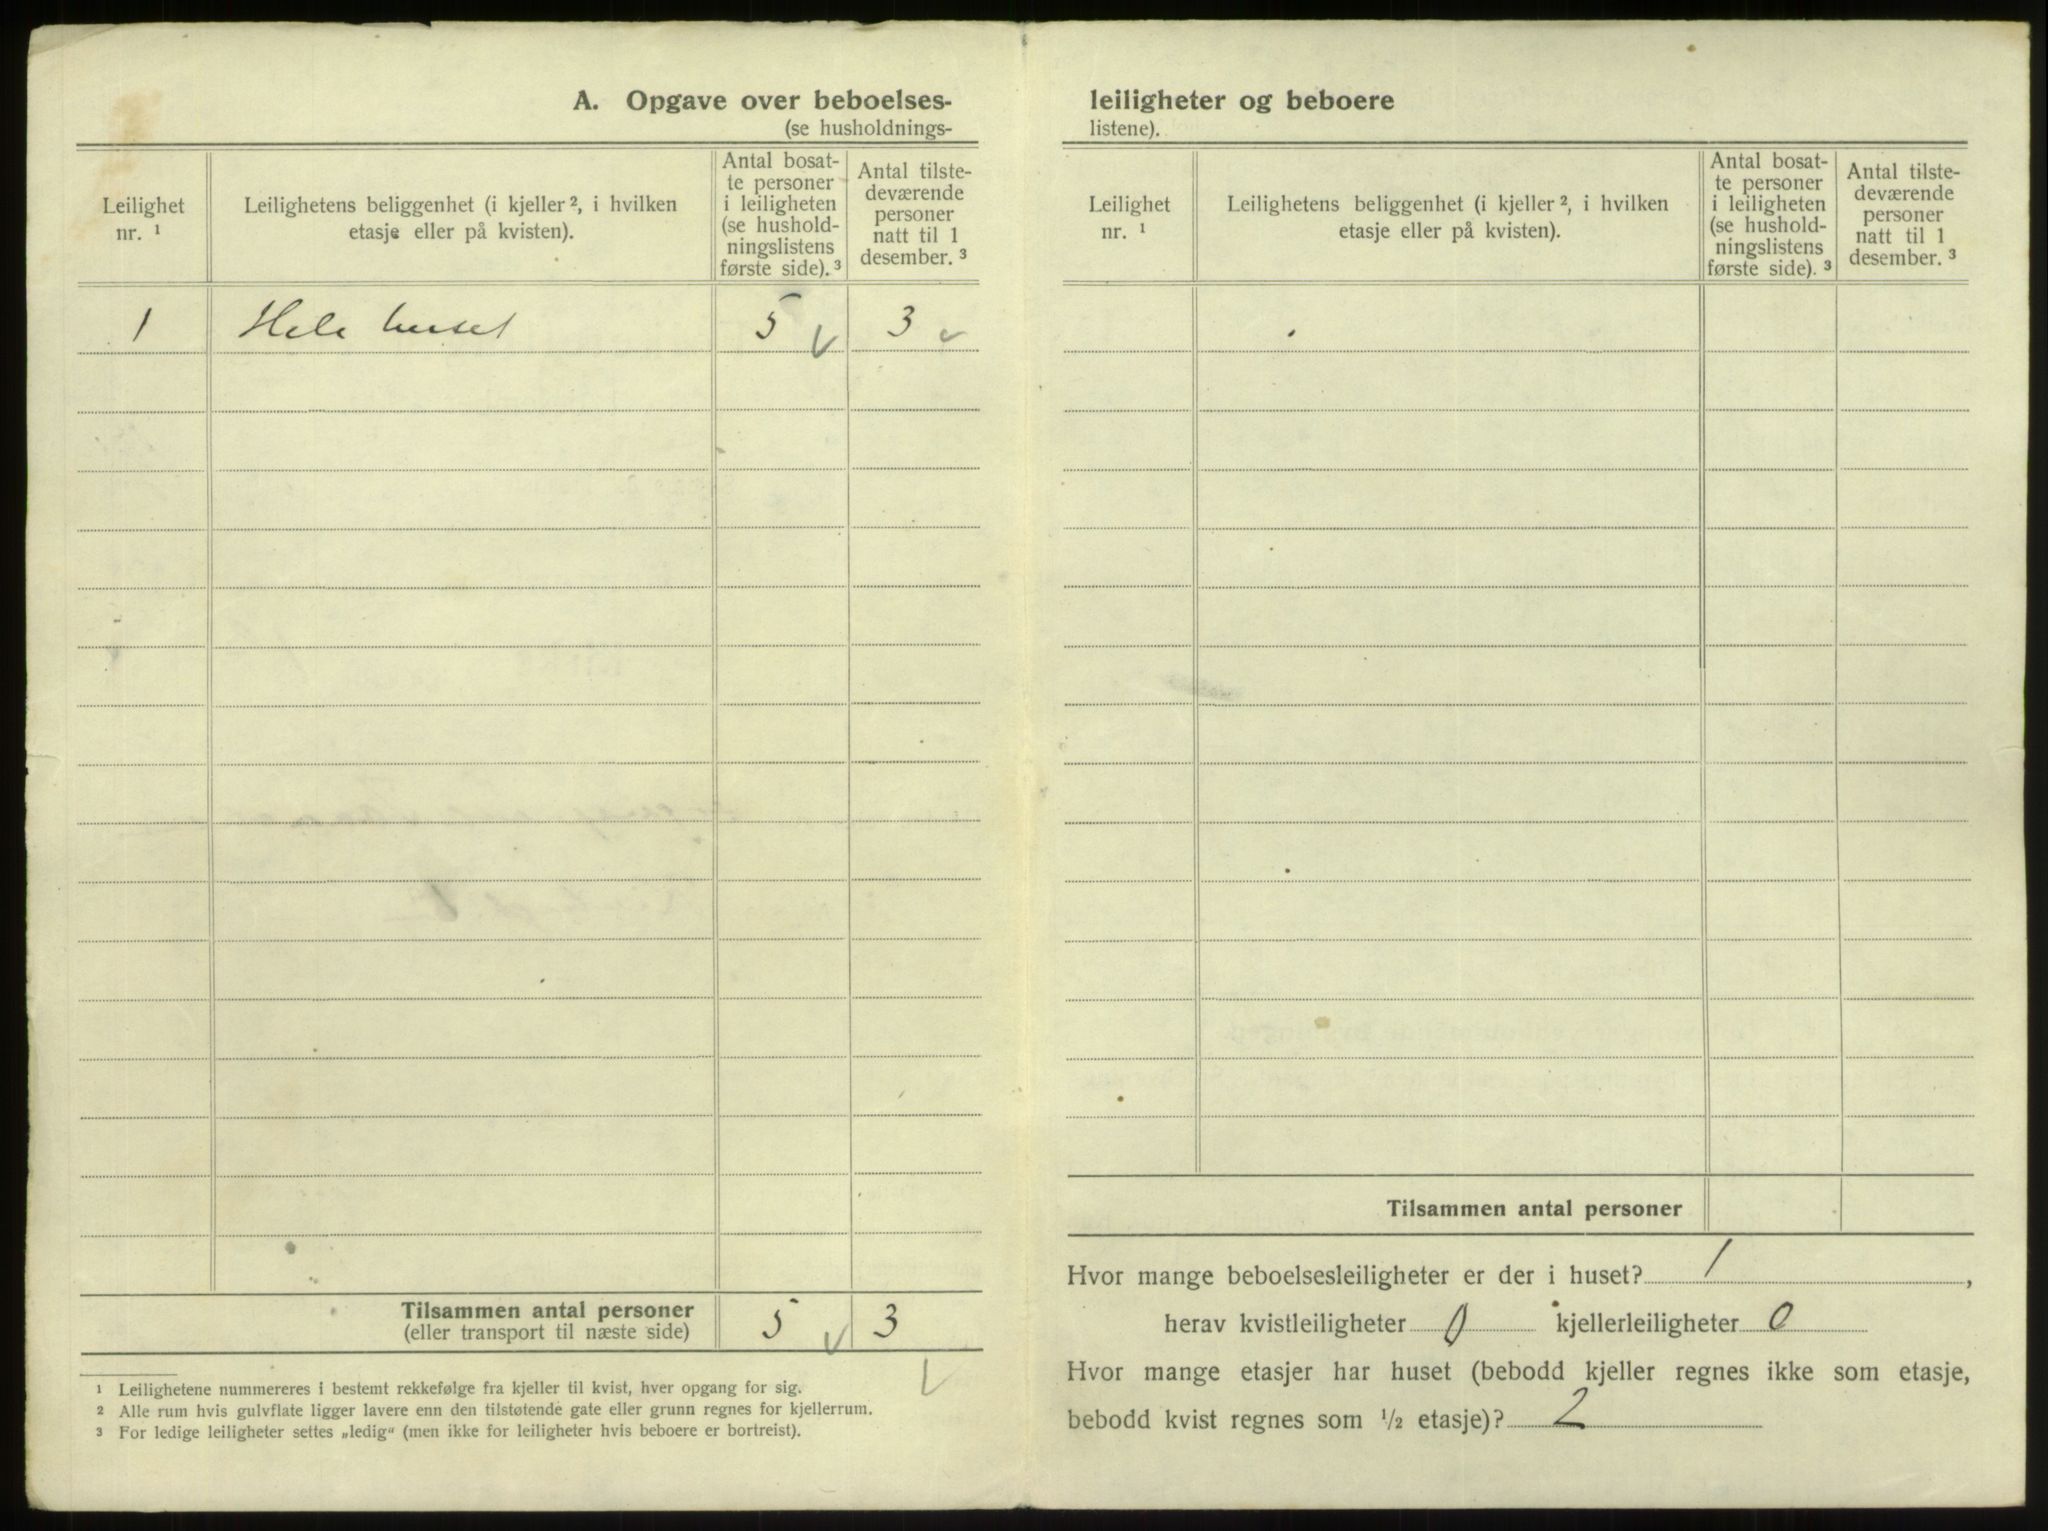 A. Opgave over beboelses-
(se husholdnings-
Leilighet
nr. ¹
Leilighetens beliggenhet (i kjeller ², i hvilken
etasje eller på kvisten).
Antal bosat-
te personer
i leiligheten
(se hushold-
ningslistens
første side). ³
Antal tilste-
deværende
personer
natt til 1
desember. ³
1 Hele huset 5 3
Tilsammen antal personer 5 3
(eller transport til næste side)
¹ Leilighetene nummereres i bestemt rekkefølge fra kjeller til kvist, hver opgang for sig.
² Alle rum hvis gulvflate ligger lavere enn den tilstøtende gate eller grunn regnes for kjellerrum.
³ For ledige leiligheter settes „ledig“ (men ikke for leiligheter hvis beboere er bortreist).
leiligheter og beboere
listene).
Leilighet
nr. ¹
Leilighetens beliggenhet (i kjeller ², i hvilken
etasje eller på kvisten).
Antal bosat-
te personer
i leiligheten
(se hushold-
ningslistens
første side). ³
Antal tilste-
deværende
personer
natt til 1
desember. ³
Tilsammen antal personer
Hvor mange beboelsesleiligheter er der i huset? 1 ,
herav kvistleiligheter 0 kjellerleiligheter 0
Hvor mange etasjer har huset (bebodd kjeller regnes ikke som etasje,
bebodd kvist regnes som ½ etasje)? 2